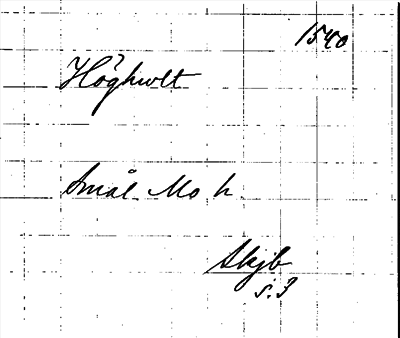 1540
Höghult
Smål Mo h
Skjb
s. 3